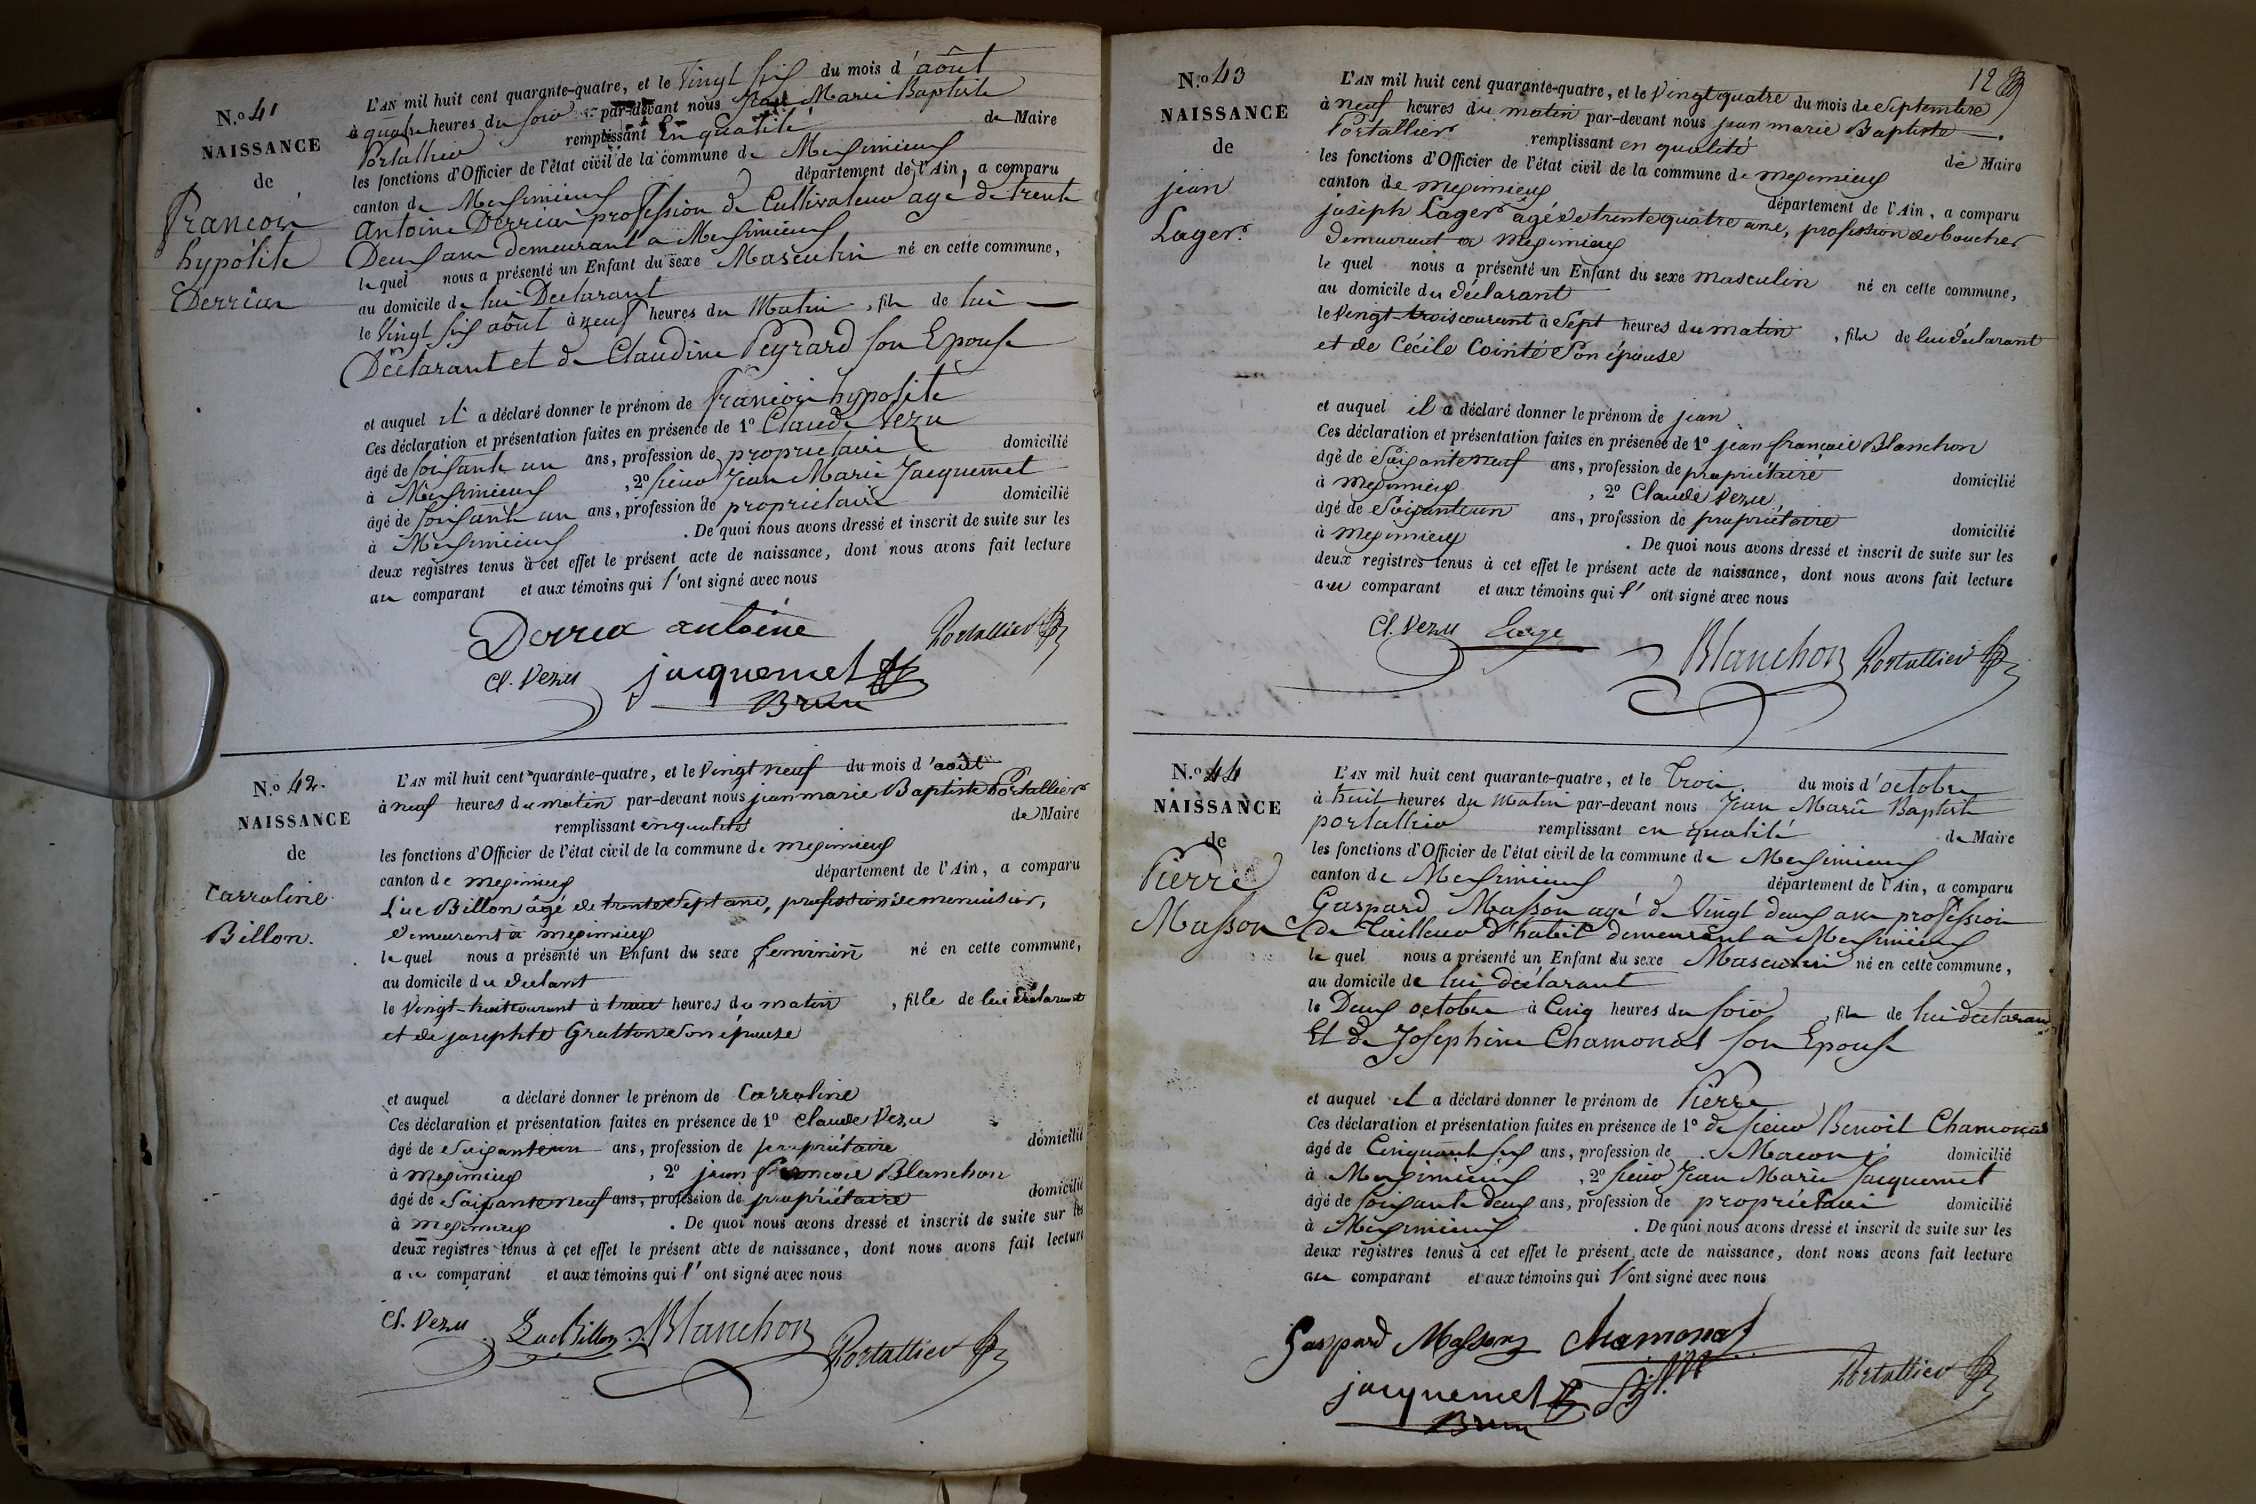 N.o 41
NAISSANCE
de
François
hypólite
Derriax
L'AN mil huit cent quarante-quatre, et le Vingt six du mois d'août
à quatre heures du soir par-devant nous Jean Marie Baptiste
Portallier remplissant En qualité de Maire
les fonctions d'Officier de l'état civil de la commune de Meximieux
canton de Meximieux département de l'Ain, a comparu
antoine Derriax profession de Cultivateur agé de trente
Deux ans demeurant a Meximieux
le quel nous a présenté un Enfant du sexe Masculin né en cette commune,
au domicile de lui Declarant
le Vingt six août à neuf heures du Matin, fils de lui
Déclarant et de Claudine Peyrard son Epouse
et auquel il a déclaré donner le prénom de françois hypolite
Ces déclaration et présentation faites en présence de 1o Claude Vezu
âgé de soixante un ans, profession de proprietaire domicilié
à Meximieux, 2o sieur Jean Marie Jacquemet
âgé de soixante un ans, profession de proprietaire domicilié
à Meximieux. De quoi nous avons dressé et inscrit de suite sur les
deux registres tenus à cet effet le présent acte de naissance, dont nous avons fait lecture
au comparant et aux témoins qui l'ont signé avec nous
Derriax antoine Portallier
Cl. Vezu jacquemet
Brun
N.o 42.
NAISSANCE
de
Carroline
Billon.
L'AN mil huit cent quarante-quatre, et le Vingt neuf du mois d'août
à neuf heures du matin par-devant nous jean marie Baptiste Portallier
remplissant en qualité de Maire
les fonctions d'Officier de l'état civil de la commune de meximieux
canton de meximieux département de l'Ain, a comparu
Luc Billon âgé de trente sept ans, profession de menuisier,
demeurant à meximieux
le quel nous a présenté un Enfant du sexe feminin né en cette commune,
au domicile du declant
le Vingt-huit courant à heures du matin, fille de lui déclarant
et de josephte Grattone son épouse
et auquel a déclaré donner le prénom de Carroline
Ces déclaration et présentation faites en présence de 1o Claude Vezu
âgé de Soixante un ans, profession de propriétaire domicilié
à meximieux, 2o jean françois Blanchon
âgé de Soixante neuf ans, profession de propriétaire domicilié
à meximieux. De quoi nous avons dressé et inscrit de suite sur les
deux registres tenus à cet effet le présent acte de naissance, dont nous avons fait lecture
au comparant et aux témoins qui l'ont signé avec nous
Cl. Vezu Luc billon Blanchon Portallier
12
N.o 43
NAISSANCE
de
jean
Lager.
L'AN mil huit cent quarante-quatre, et le Vingt quatre du mois de Septembre
à neuf heures du matin par-devant nous jean marie Baptiste
Portallier remplissant en qualité de Maire
les fonctions d'Officier de l'état civil de la commune de meximieux
canton de meximieux département de l'Ain, a comparu
joseph Lager âgé de trente quatre ans, profession de boucher
demeurant a meximieux
le quel nous a présenté un Enfant du sexe masculin né en cette commune,
au domicile du déclarant
le Vingt-trois courant à Sept heures du matin, fils de lui déclarant
et de Cécile Cointé Son épouse
et auquel il a déclaré donner le prénom de jean
Ces déclaration et présentation faites en présence de 1o jean françois Blanchon
âgé de Soixante neuf ans, profession de propriétaire domicilié
à meximieux, 2o Claude Vezu
âgé de Soixante un ans, profession de propriétaire domicilié
à meximieux. De quoi nous avons dressé et inscrit de suite sur les
deux registres tenus à cet effet le présent acte de naissance, dont nous avons fait lecture
au comparant et aux témoins qui l'ont signé avec nous
Cl. Vezu Blanchon Portallier
N.o 44
NAISSANCE
de
Pierre
Masson
L'AN mil huit cent quarante-quatre, et le trois du mois d'octobre
à huit heures du Matin par-devant nous Jean Marie Baptiste
portallier remplissant en qualité de Maire
les fonctions d'Officier de l'état civil de la commune de Meximieux
canton de Meximieux département de l'Ain, a comparu
Gaspard Masson agé de Vingt deux ans profession
de Tailleur d'habit demeurant a Meximieux
le quel nous a présenté un Enfant du sexe Masculin né en cette commune,
au domicile de lui déclarant
le Deux octobre à Cinq heures du soir, fils de lui declarant
Et de Josephine Chamonat son Epouse
et auquel il a déclaré donner le prénom de Pierre
Ces déclaration et présentation faites en présence de 1o de sieur Benoit Chamonat
âgé de Cinquante six ans, profession de Macon domicilié
à Meximieux, 2o sieur Jean Marie Jacquemet
âgé de soixante deux ans, profession de propriétaire domicilié
à Meximieux. De quoi nous avons dressé et inscrit de suite sur les
deux registres tenus à cet effet le présent acte de naissance, dont nous avons fait lecture
au comparant et aux témoins qui l'ont signé avec nous
Gaspard Masson Chamonat
jacquemet Portallier
Brun